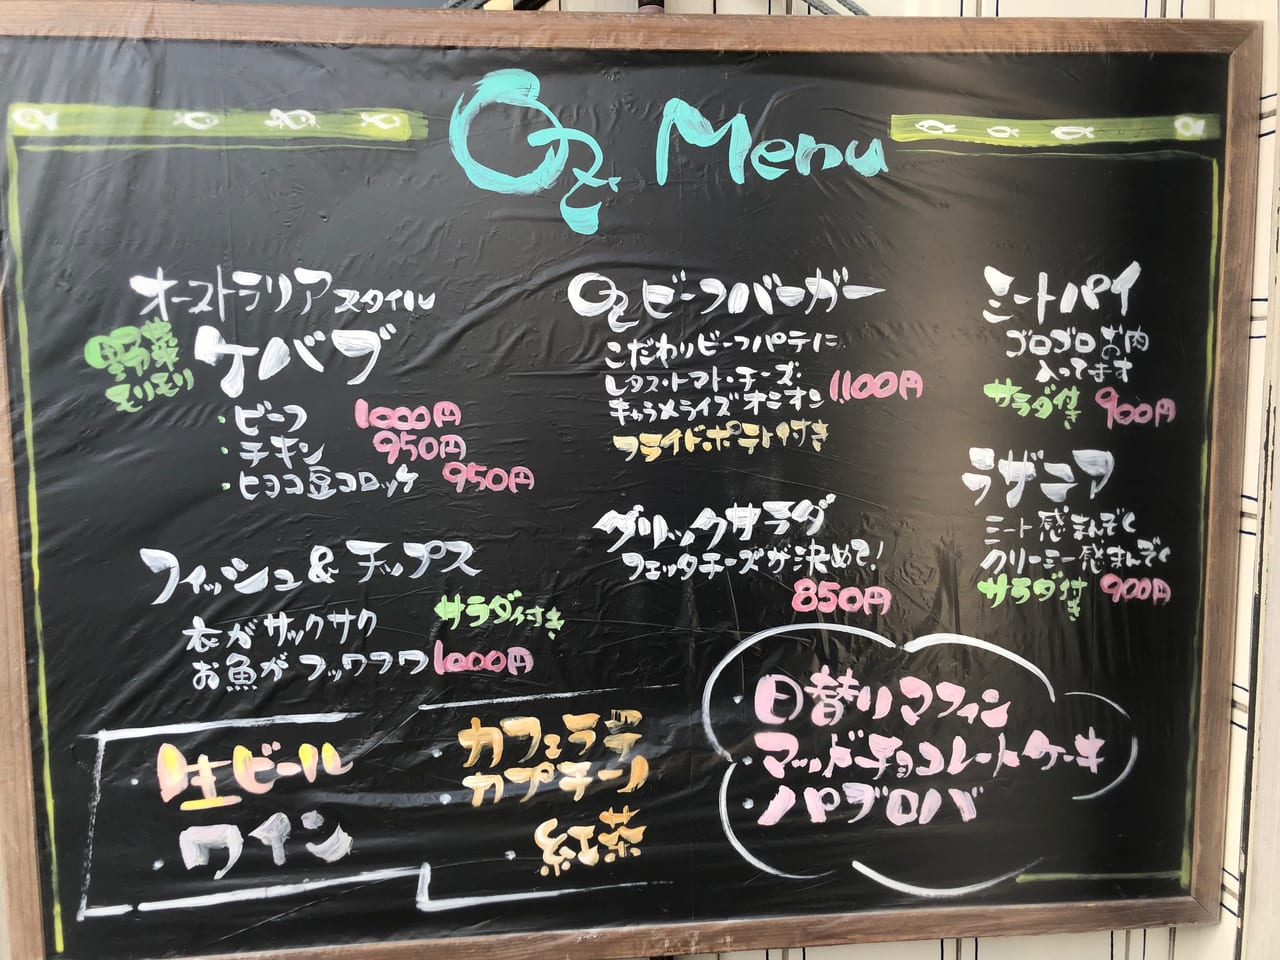 Oz Menu
オーストラリアスタイル
野菜
モリモリ
ケバブ
・ビーフ 1000円
・チキン 950円
・ヒヨコ豆コロッケ 950円
フィッシュ&チップス
衣がサックサク
お魚がフッワフワ
サラダ付き
1000円
Ozビーフバーガー
こだわりビーフパテに
レタス・トマト・チーズ・
キャラメライズオニオン
1,100円
フライドポテト付き
グリークサラダ
フェッタチーズが決めて!
850円
ミートパイ
ゴロゴロお肉
入ってます
サラダ付き 900円
ラザニア
ミート感まんぞく
クリーミー感まんぞく
サラダ付き 900円
・生ビール
・ワイン
・カフェラテ
・カプチーノ
・紅茶
・日替りマフィン
・マッドチョコレートケーキ
・パブロバ